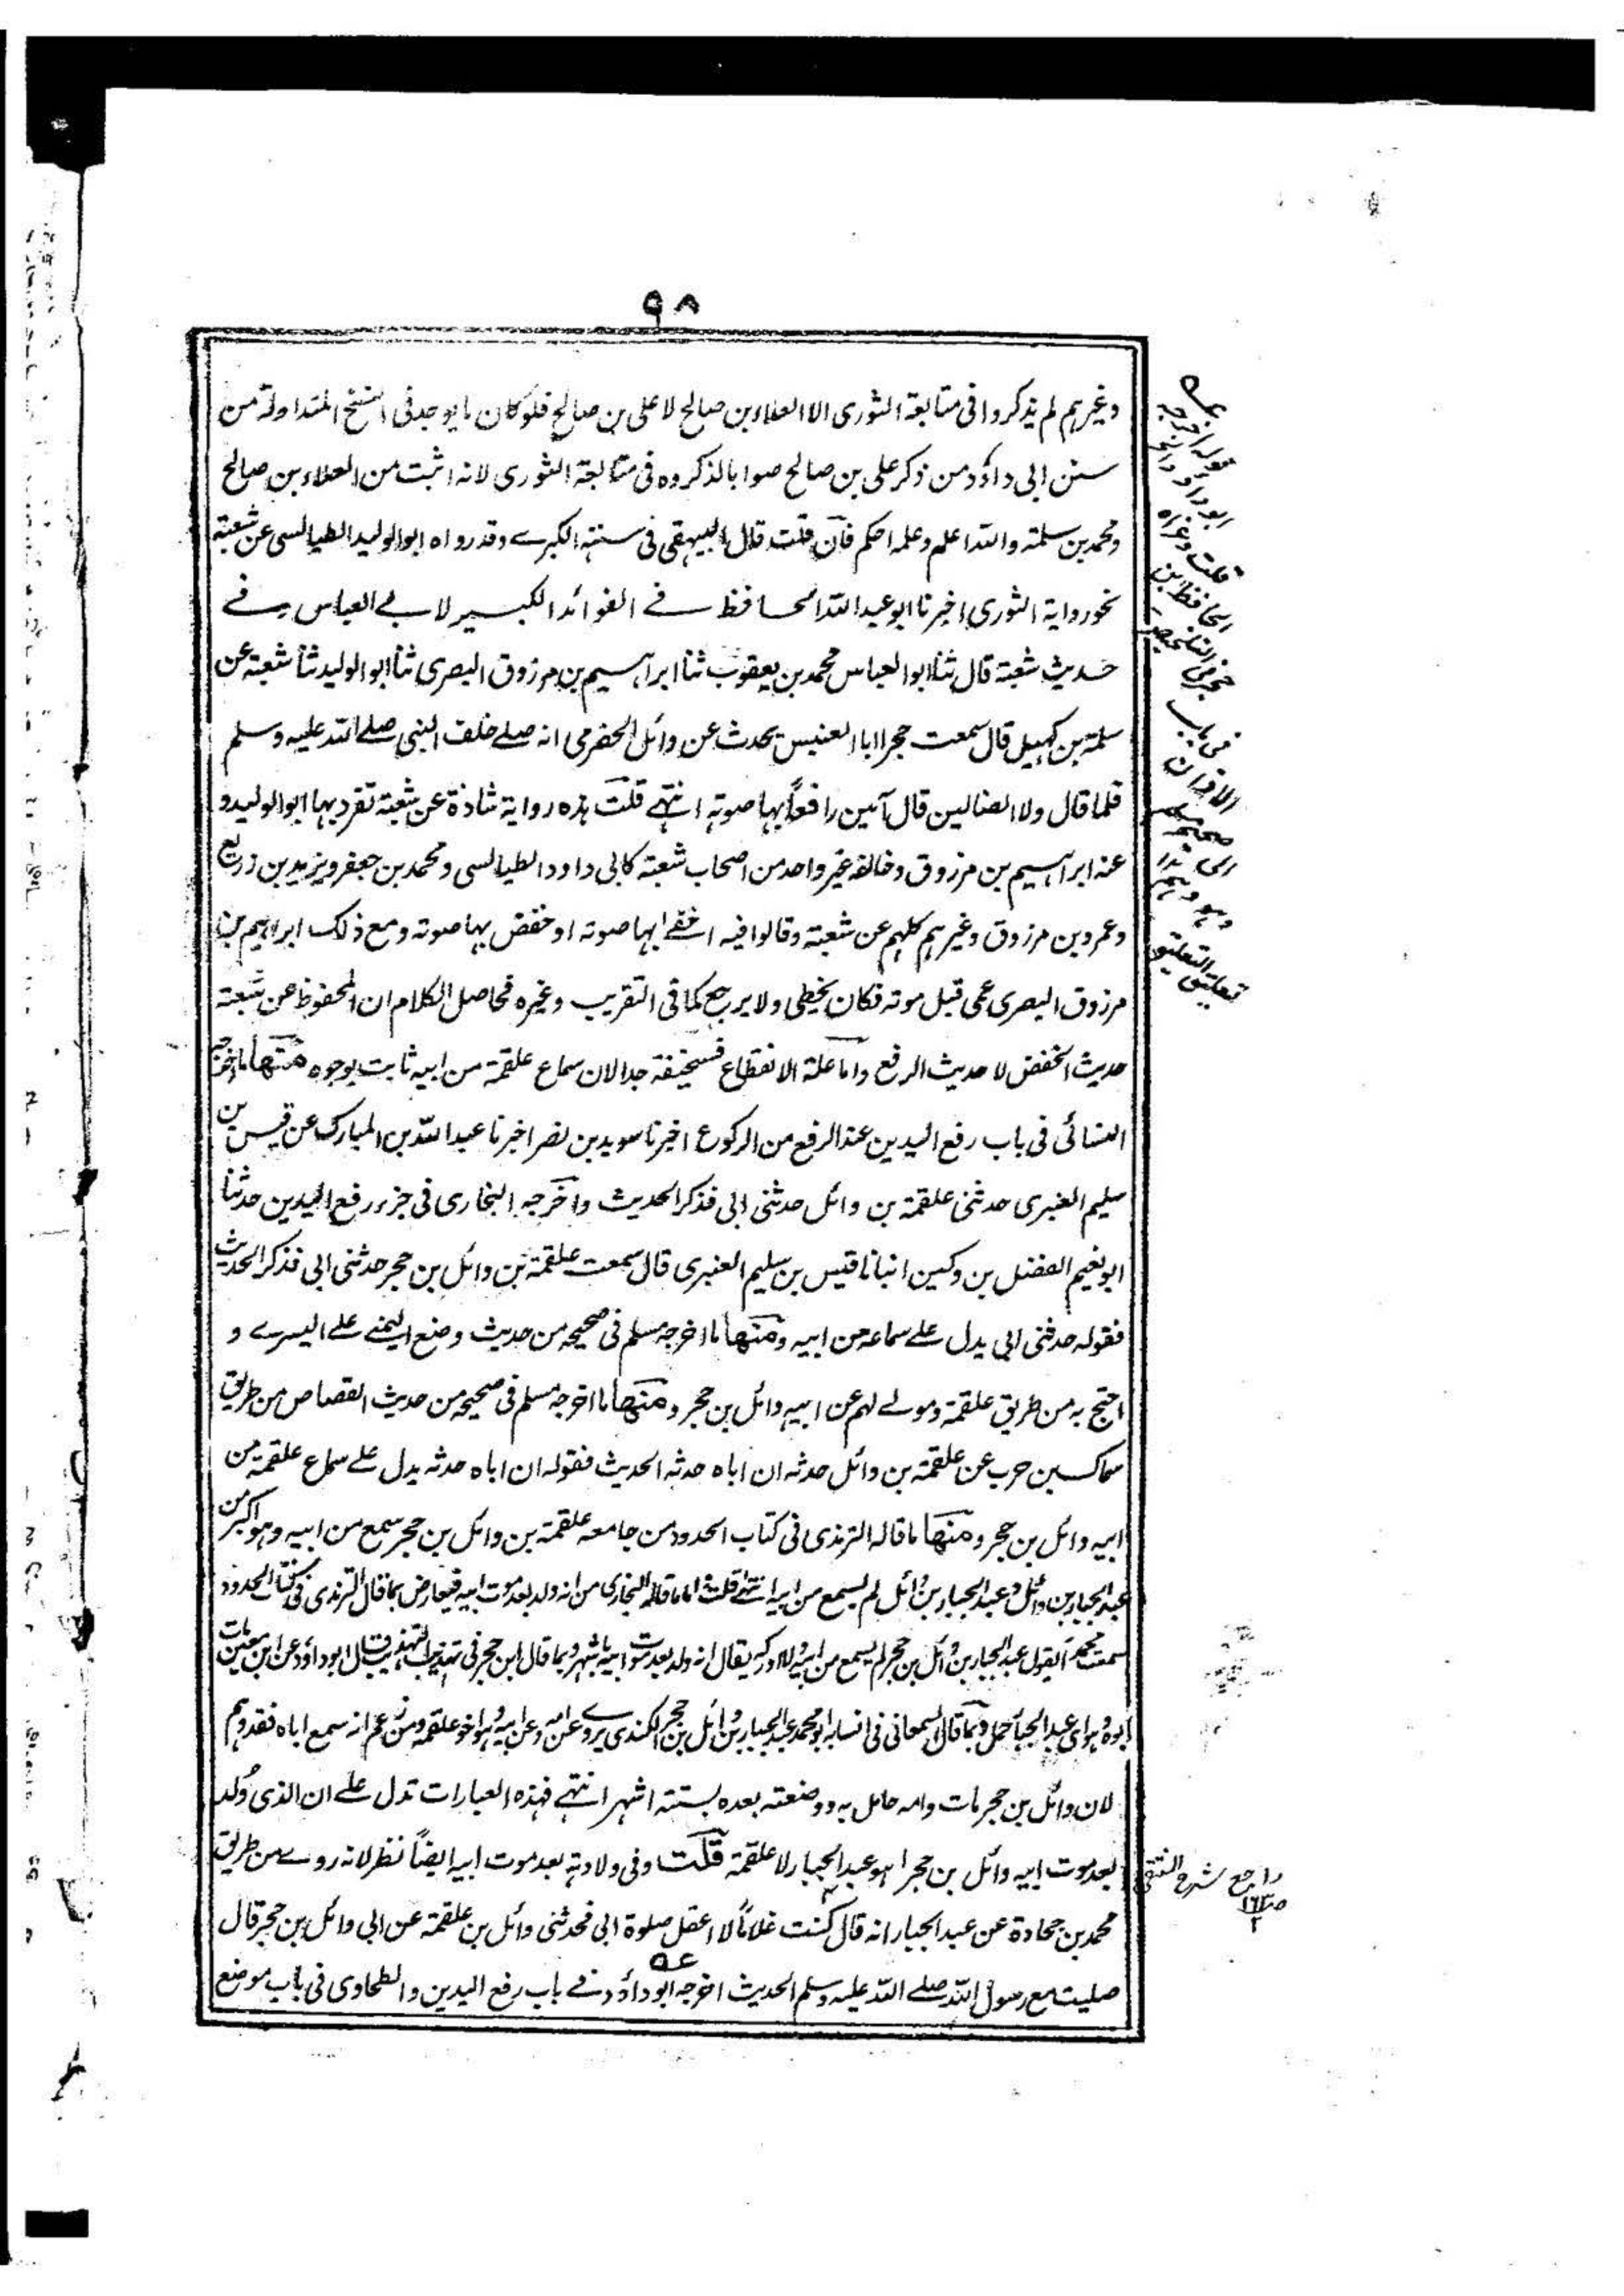 ٩٨
وغيرہم لم يذكروا فى متابعة الثورى الا العلاء بن صالح لا على بن صالح فلو كان ما يوجد فى النسخ المتداولة من
سنن ابى داؤد من ذكر على بن صالح صوابا لذكروه فى متابعة الثورى لانه اثبت من العلاء بن صالح
ومحمد بن سلمة والله اعلم وعلمه احكم فان قلت قال البيهقى فى سننه الكبرے وقد رواه ابو الوليد الطيالسى عن شعبة
نحو رواية الثورى اخبرنا ابو عبد الله الحافظ فے الفوائد الكبير لابے العباس وفے
حديث شعبة قال ثنا ابو العباس محمد بن يعقوب ثنا ابراہيم بن مرزوق البصرى ثنا ابو الوليد ثنا شعبة عن
سلمة بن كہيل قال سمعت حجرا ابا العنبس يحدث عن وائل الحضرمى انه صلے خلف النبى صلے الله عليه وسلم
فلما قال ولا الضالين قال آمين رافعاً بہا صوته انتہے قلت ہذه رواية شاذة عن شعبة تفرد بہا ابو الوليد و
عنه ابراہيم بن مرزوق وخالفه غير واحد من اصحاب شعبة كابى داود الطيالسى ومحمد بن جعفر ويزيد بن زريع
وعمرو بن مرزوق وغيرہم كلہم عن شعبة وقالوا فيه اخفے بہا صوته او خفض بہا صوته ومع ذلك ابراہيم بن
مرزوق البصرى عمى قبل موته فكان يخطى ولا يرجع كما فى التقريب وغيره فحاصل الكلام ان المحفوظ عن شعبة
حديث الخفض لا حديث الرفع واما علة الانقطاع فسخيفة جدا لان سماع علقمة من ابيه ثابت بوجوه منها ما اخرجه
النسائى فى باب رفع اليدين عند الرفع من الركوع اخبرنا سويد بن نصر اخبرنا عبد الله بن المبارك عن قيس بن
سليم العنبرى حدثنى علقمة بن وائل حدثنى ابى فذكر الحديث واخرجه البخارى فى جزء رفع اليدين حدثنا
ابو نعيم الفضل بن دكين انبانا قيس بن سليم العنبرى قال سمعت علقمة بن وائل بن حجر حدثنى ابى فذكر الحديث
فقوله حدثنى ابى يدل علے سماعه من ابيه ومنها ما اخرجه مسلم فى صحيحه من حديث وضع اليمنے علے اليسرے و
احتج به من طريق علقمة ومولے لہم عن ابيه وائل بن حجر ومنها ما اخرجه مسلم فى صحيحه من حديث القصاص من طريق
سماك بن حرب عن علقمة بن وائل حدثه ان اباه حدثه الحديث فقوله ان اباه حدثه يدل علے سماع علقمة من
ابيه وائل بن حجر ومنها ما قاله الترمذى فى كتاب الحدود من جامعه علقمة بن وائل بن حجر سمع من ابيه وہو اكبر من
عبد الجبار بن وائل وعبد الجبار بن وائل لم يسمع من ابيه انتہے قلت اما ما قاله البخارى من انه ولد بعد موت ابيه فيعارض بما قال الترمذى فى كتاب الحدود
سمعت محمدا يقول عبد الجبار بن وائل بن حجر لم يسمع من ابيه ولا ادركه يقال انه ولد بعد موت ابيه باشہر وبما قال ابن حجر فى تہذيب التہذيب قال ابو داؤد عن ابن معين مات
ابوه وہو اى عبد الجبار حمل وبما قال السمعانى فى انسابه ابو محمد عبد الجبار بن وائل بن حجر الكندى يروے عن امه وعن ابيه وہو اخو علقمة ومن زعم انه سمع اباه فقد وہم
لان وائل بن حجر مات وامه حامل به ووضعته بعده بستة اشہر انتہے فہذه العبارات تدل علے ان الذى وُلد
بعد موت ابيه وائل بن حجر ہو عبد الجبار لا علقمة قلت وفى ولادته بعد موت ابيه ايضاً نظر لانه روے من طريق
محمد بن جحادة عن عبد الجبار انه قال كنت غلاماً لا اعقل صلوة ابى فحدثنى وائل بن علقمة عن ابى وائل بن حجر قال
صليت مع رسول الله صلے الله عليه وسلم الحديث اخرجه ابو داؤد فے باب رفع اليدين والطحاوى فى باب موضع
قوله اخرجه
ابو داؤد
قلت وعزاه
الحافظ ابن
حجر فى التلخيص
فى باب
الاذان
الى صحيح مسلم
وہو وہم
تعليق التعليق
راجع شرح النقى